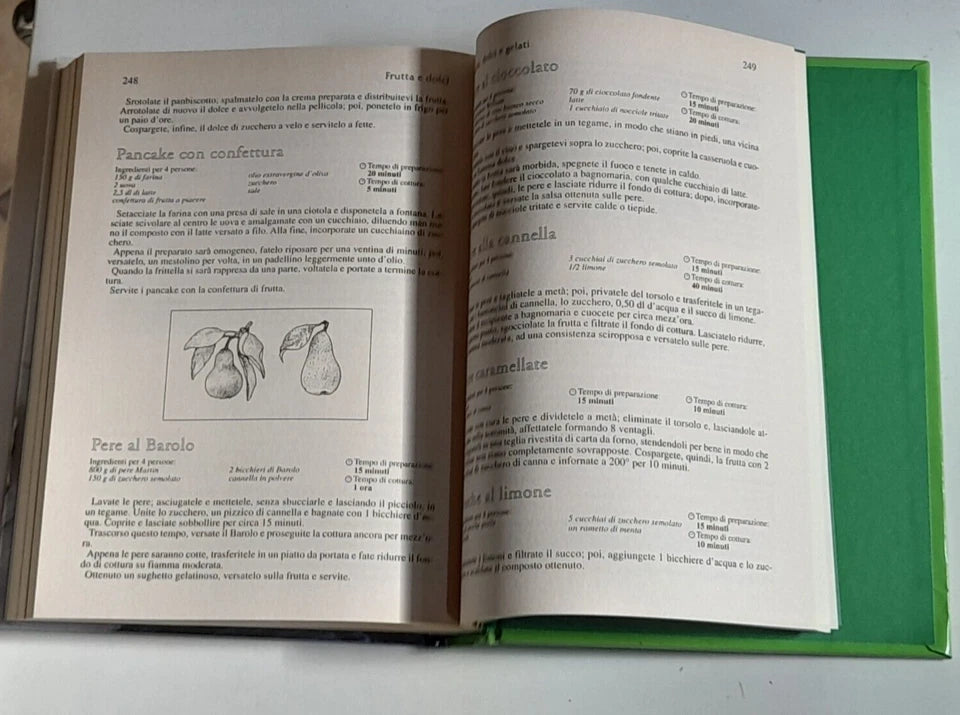 248
Frutta e dolci
Srotolate il panbiscotto, spalmatelo con la crema preparata e distribuitevi la frutta.
Arrotolate di nuovo il dolce e avvolgetelo nella pellicola; poi, ponetelo in frigo per
un paio d'ore.
Cospargete, infine, il dolce di zucchero a velo e servitelo a fette.
Pancake con confettura
Ingredienti per 4 persone:
150 g di farina
2 uova
2,5 dl di latte
confettura di frutta a piacere
olio extravergine d'oliva
zucchero
sale
Tempo di preparazione:
20 minuti
Tempo di cottura:
5 minuti
Setacciate la farina con una presa di sale in una ciotola e disponetela a fontana. La-
sciate scivolare al centro le uova e amalgamate con un cucchiaio, diluendo man ma-
no il composto con il latte versato a filo. Alla fine, incorporate un cucchiaino di zuc-
chero.
Appena il preparato sarà omogeneo, fatelo riposare per una ventina di minuti; poi,
versatelo, un mestolino per volta, in un padellino leggermente unto d'olio.
Quando la frittella si sarà rappresa da una parte, voltatela e portate a termine la cot-
tura.
Servite i pancake con la confettura di frutta.
Pere al Barolo
Ingredienti per 4 persone:
800 g di pere Martin
150 g di zucchero semolato
2 bicchieri di Barolo
cannella in polvere
Tempo di preparazione:
15 minuti
Tempo di cottura:
1 ora
Lavate le pere; asciugatele e mettetele, senza sbucciarle e lasciando il picciolo, in
un tegame. Unite lo zucchero, un pizzico di cannella e bagnate con 1 bicchiere d'ac-
qua. Coprite e lasciate sobbollire per circa 15 minuti.
Trascorso questo tempo, versate il Barolo e proseguite la cottura ancora per mezz'o-
ra.
Appena le pere saranno cotte, trasferitele in un piatto da portata e fate ridurre il fon-
do di cottura su fiamma moderata.
Ottenuto un sughetto gelatinoso, versatelo sulla frutta e servite.
dolci e gelati
249
al cioccolato
70 g di cioccolato fondente
latte
1 cucchiaio di nocciole tritate
Tempo di preparazione:
15 minuti
Tempo di cottura:
20 minuti
pere e mettetele in un tegame, in modo che stiano in piedi, una vicina
e spargetevi sopra lo zucchero; poi, coprite la casseruola e cuo-
sarà morbida, spegnete il fuoco e tenete in caldo.
il cioccolato a bagnomaria, con qualche cucchiaio di latte.
quindi, le pere e lasciate ridurre il fondo di cottura; dopo, incorporate-
versate la salsa ottenuta sulle pere.
tritate e servite calde o tiepide.
alla cannella
3 cucchiai di zucchero semolato
1/2 limone
Tempo di preparazione:
15 minuti
Tempo di cottura:
40 minuti
e tagliatele a metà; poi, privatele del torsolo e trasferitele in un tega-
di cannella, lo zucchero, 0,50 dl d'acqua e il succo di limone.
a bagnomaria e cuocete per circa mezz'ora.
sgocciolate la frutta e filtrate il fondo di cottura. Lasciatelo ridurre,
ad una consistenza sciropposa e versatelo sulle pere.
caramellate
Tempo di preparazione
15 minuti
Tempo di cottura:
10 minuti
le pere e dividetele a metà; eliminate il torsolo e, lasciandole at-
affettatele formando 8 ventagli.
teglia rivestita di carta da forno, stendendoli per bene in modo che
completamente sovrapposte. Cospargete, quindi, la frutta con 2
di canna e infornate a 200° per 10 minuti.
al limone
5 cucchiai di zucchero semolato
un rametto di menta
Tempo di preparazione:
15 minuti
Tempo di cottura:
10 minuti
e filtrate il succo; poi, aggiungete 1 bicchiere d'acqua e lo zuc-
il composto ottenuto.